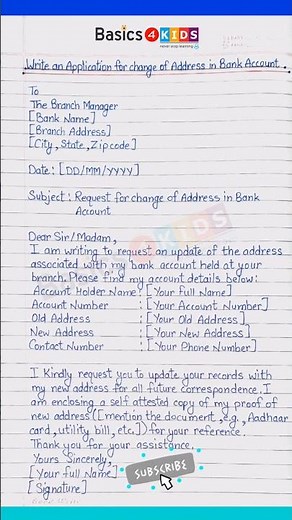 Basics 4 KIDS
never stop learning
Write an Application for change of Address in Bank Account.
To
The Branch Manager
[Bank Name]
[Branch Address]
[City, State, Zipcode]
Date: [DD/MM/YYYY]
Subject: Request for change of Address in Bank
Account
Dear Sir/Madam,
I am writing to request an update of the address
associated with my bank account held at your
branch. Please find my account details below:
Account Holder Name: [Your Full Name]
Account Number : [Your Account Number]
Old Address : [Your Old Address]
New Address : [Your New Address]
Contact Number : [Your Phone Number]
I Kindly request you to update your records with
my new address for all future correspondence. I
am enclosing a self attested copy of my proof of
new address ([mention the document, e.g., Aadhaar
card, utility bill, etc.]) for your reference.
Thank you for your assistance.
Yours Sincerely,
[Your full Name]
[Signature]
SUBSCRIBE